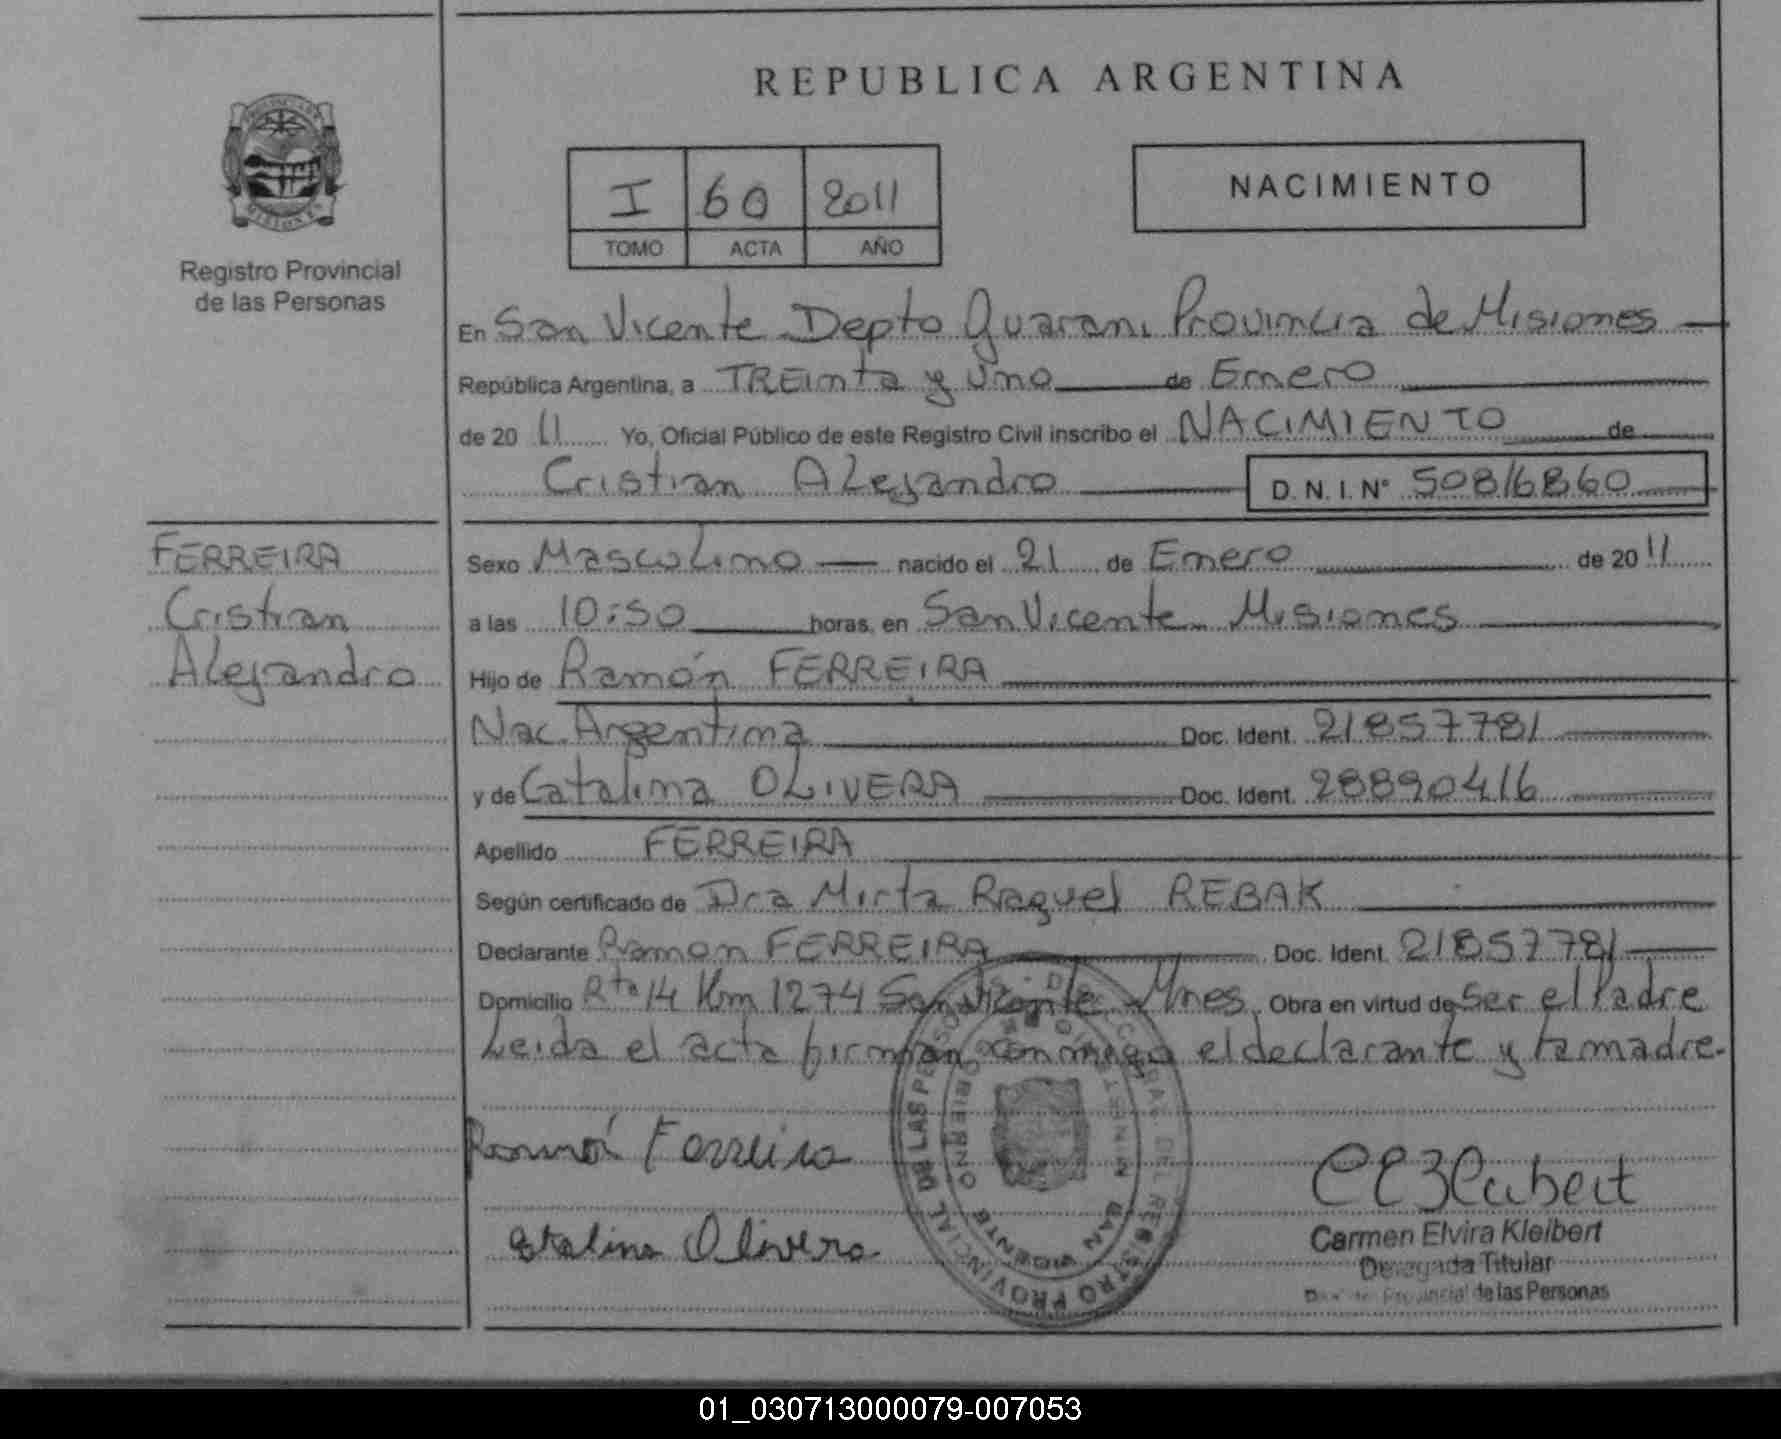 REPUBLICA ARGENTINA
I 60 2011
TOMO ACTA AÑO
NACIMIENTO
Registro Provincial
de las Personas
En San Vicente Depto Guarani Provincia de Misiones
República Argentina, a TREinta y Uno de Enero
de 2011 Yo, Oficial Público de este Registro Civil inscribo el NACIMIENTO de
Cristian ALejandro D.N.I.Nº 50816860
FERREIRA
Cristian
ALejandro
Sexo MascuLino nacido el 21 de Enero de 2011
a las 10:50 horas, en San Vicente Misiones
Hijo de Ramón FERREIRA
Nac. Argentina Doc. Ident. 21857781
y de Catalina OLIVERA Doc. Ident. 28890416
Apellido FERREIRA
Según certificado de Dra Mirta Raquel REBAK
Declarante Ramon FERREIRA Doc. Ident. 21857781
Domicilio Rta 14 Km 1274 San Vicente Mnes. Obra en virtud de Ser el Padre
Leida el acta firman conmigo el declarante y la madre.
Ramón Ferreira
Catalina Olivera
Carmen Elvira Kleibert
Delegada Titular
Provincial de las Personas
REGISTRO PROVINCIAL DE LAS PERSONAS
SAN VICENTE
01_030713000079-007053